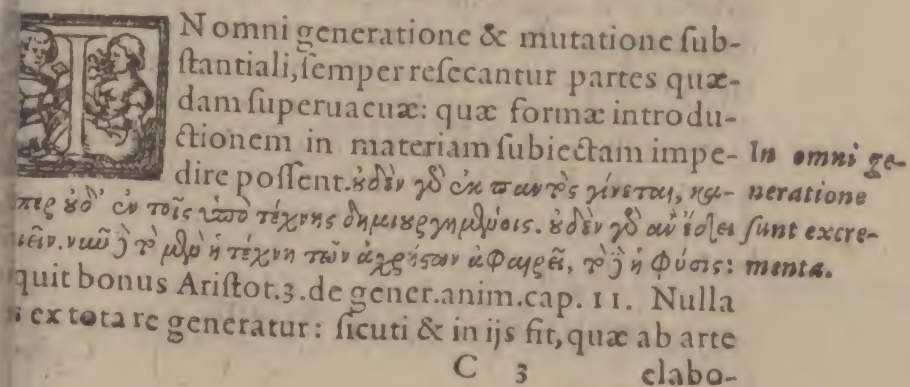 IN omni generatione & mutatione ſub-
ſtantiali, ſemper reſecantur partes quæ-
dam ſuperuacuæ: quæ formæ introdu-
ctionem in materiam ſubiectam impe-
dire poſſent. ȣ̓δὲν γδ ἐκ παντὸς γίνεται, κα-
περ ȣ̓δ' ἐν τοῖς ὑπὸ τέχνης δημιȣργημένοις. ȣ̓δὲν γδ ἂν ἔδει
ιεῖν. νῦν δὲ τὸ μὲν ἡ τέχνη τῶν ἀχρήςων ἀφαιρεῖ, τὸ δὲ ἡ φύσις:
quit bonus Ariſtot. 3. de gener. anim. cap. 11. Nulla
i ex tota re generatur: ſicuti & in ijs fit, quæ ab arte
C 3 elabo-
In omni ge-
neratione
ſunt excre-
menta.